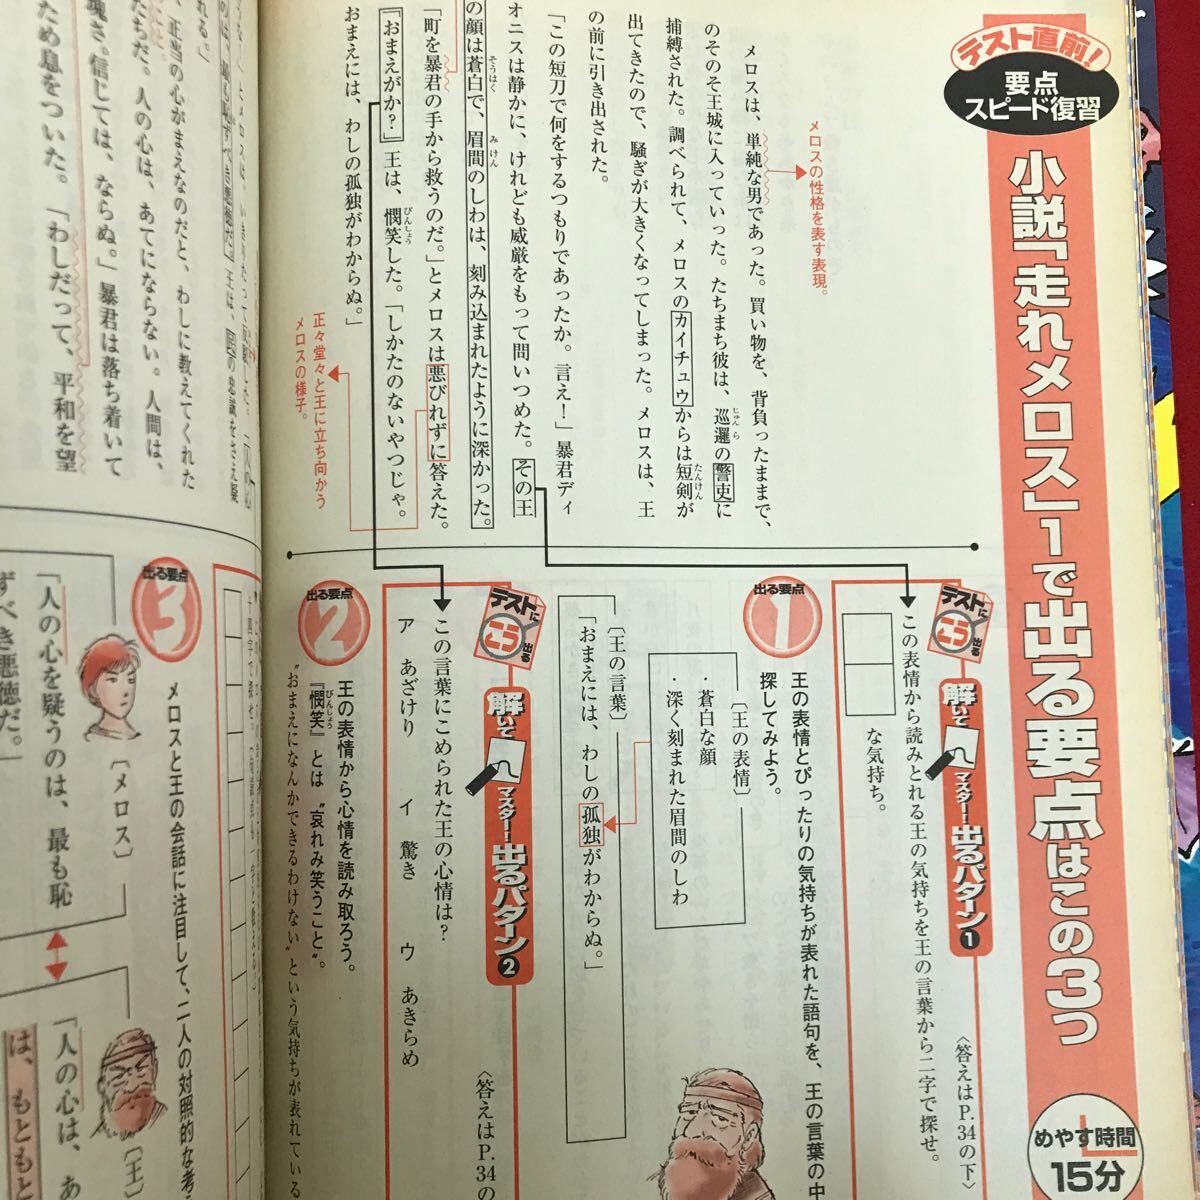 テスト直前!
要点
スピード復習
小説「走れメロス」1で出る要点はこの3つ
めやす時間
15分
メロスの性格を表す表現。
メロスは、単純な男であった。買い物を、背負ったままで、
のそのそ王城に入っていった。たちまち彼は、巡邏の警吏に
じゅんら
捕縛された。調べられて、メロスのカイチュウからは短剣が
たんけん
出てきたので、騒ぎが大きくなってしまった。メロスは、王
の前に引き出された。
「この短刀で何をするつもりであったか。言え!」暴君ディ
オニスは静かに、けれども威厳をもって問いつめた。その王
の顔は蒼白で、眉間のしわは、刻み込まれたように深かった。
そうはく
みけん
「町を暴君の手から救うのだ。」とメロスは悪びれずに答えた。
「おまえがか?」王は、憫笑した。「しかたのないやつじゃ。
びんしょう
おまえには、わしの孤独がわからぬ。」
正々堂々と王に立ち向かう
メロスの様子。
テストにこう出る
解いてマスター!出るパターン1
この表情から読みとれる王の気持ちを王の言葉から二字で探せ。
な気持ち。
〈答えはP.34の下〉
出る要点
1
王の表情とぴったりの気持ちが表れた語句を、王の言葉の中
探してみよう。
〔王の表情〕
・蒼白な顔
・深く刻まれた眉間のしわ
〔王の言葉〕
「おまえには、わしの孤独がわからぬ。」
テストにこう出る
解いてマスター!出るパターン2
この言葉にこめられた王の心情は?
ア あざけり イ 驚き ウ あきらめ
〈答えはP.34の
出る要点
2
王の表情から心情を読み取ろう。
『憫笑』とは〝哀れみ笑うこと〟。
びんしょう
〝おまえになんかできるわけない〟という気持ちが表れている
れる。」
、正当の心がまえなのだと、わしに教えてくれた
たちだ。人の心は、あてにならない。人間は、
塊さ。信じては、ならぬ。」暴君は落ち着いて
ため息をついた。「わしだって、平和を望
出る要点
3
メロスと王の会話に注目して、二人の対照的な考
〔メロス〕
「人の心を疑うのは、最も恥
ずべき悪徳だ。」
〔王〕
「人の心は、あ
は、もともと